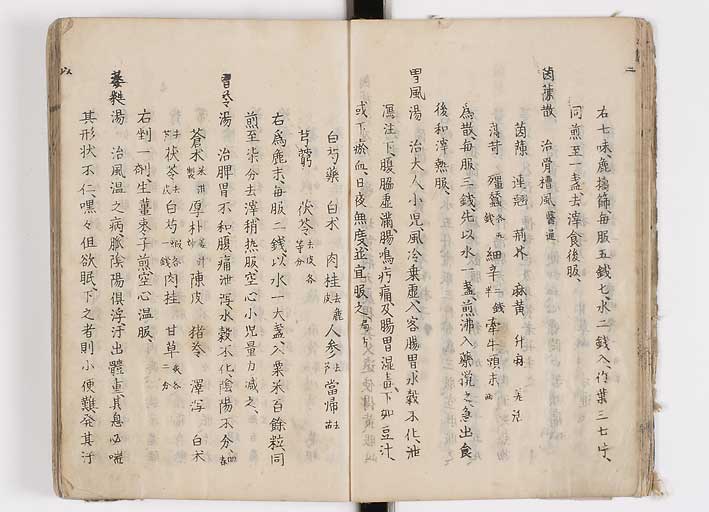 右七味、麁擣篩、毎服五銭匕、水二銭入、竹葉三七片、
同煎至一盞去滓食後服、
茵蔯散 治骨槽風 醫通
茵蔯 連翹 荊芥 麻黄 升麻 羌活
薄荷 殭蠶 各五銭 細辛 二銭半 牽牛頭末
為散毎服三銭先以水一盞、煎沸入薬攪之、急出食
後和滓熱服、
胃風湯 治大人小児、風冷乗虚、入客腸胃水穀不化、泄
瀉注下、腹脇虚満、腸鳴㽲痛、及腸胃湿毒、下如豆汁、
或下瘀血、日夜無度、並宜服之、局方
白芍薬 白术 肉桂 去麁皮 人参 去 當帰
芎藭 茯苓 去皮各等分
右為麁末、毎服二銭、以水一大盞、入粟米百餘粒、同
煎至柒分去滓稍熱服、空心小児量力減之、
胃苓湯 治脾胃不和腹痛泄瀉、水穀不化、陰陽不分、
蒼术 米泔製 厚朴 姜汁炒 陳皮 猪苓 澤瀉 白术
茯苓 去皮 白芍 各一銭 肉桂 甘草 各二分
右剉一剤生薑棗子煎空心温服、
湯 治風温之病脈陰陽倶浮汗出體重其息必喘
其形状不仁、嘿々但欲眠、下之者則小便難発其汗